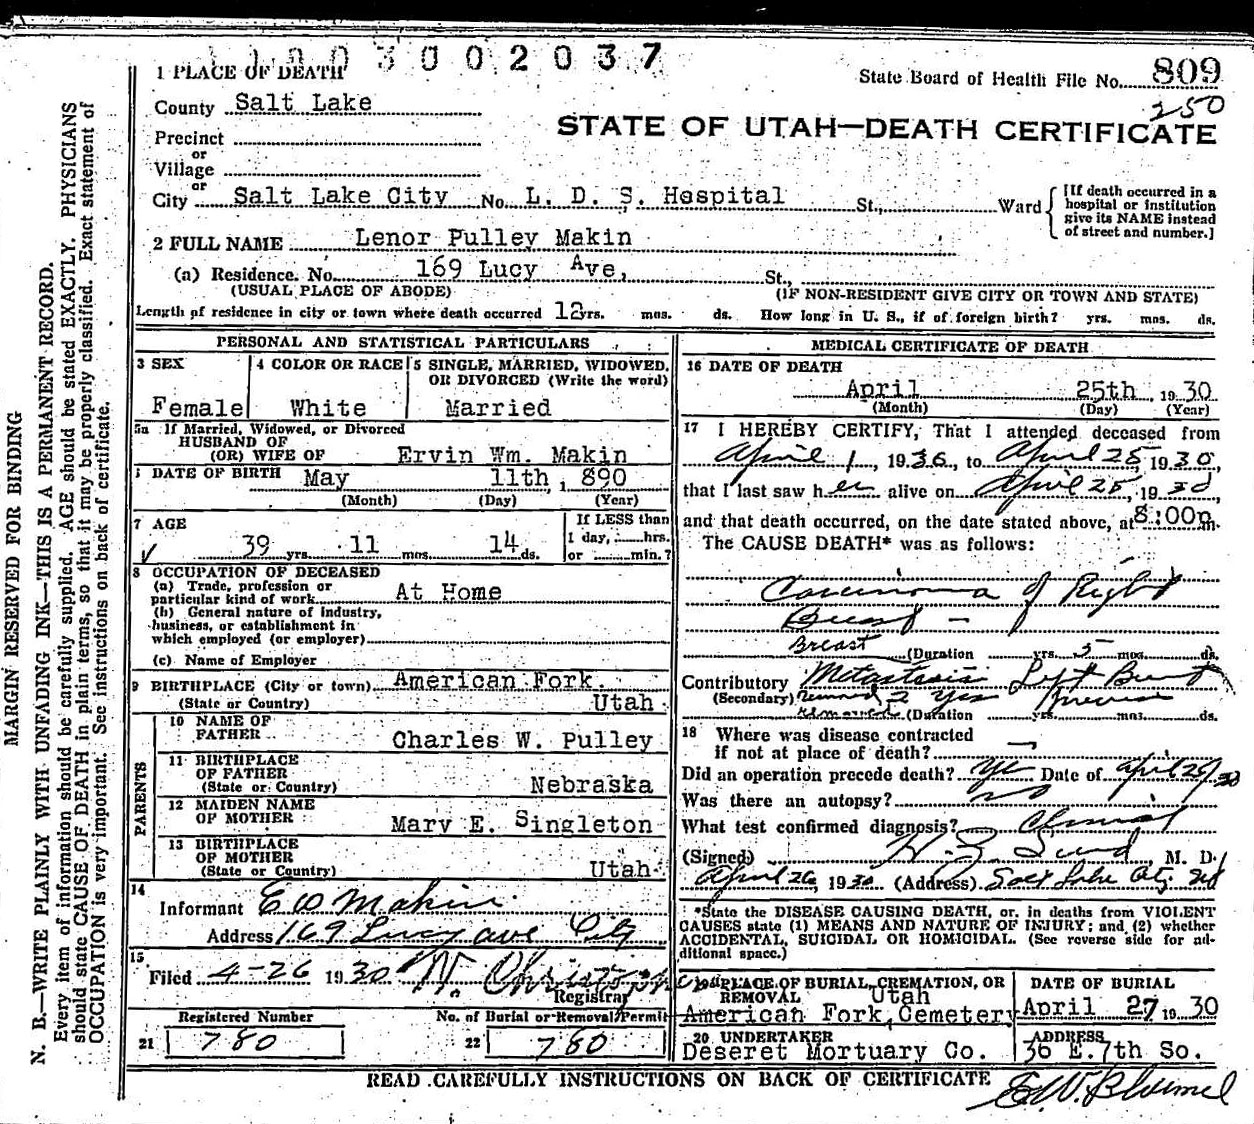 1003002037
1 PLACE OF DEATH
State Board of Health File No. 809
250
County Salt Lake
STATE OF UTAH—DEATH CERTIFICATE
Precinct
or
Village
or
City Salt Lake City No. L. D. S. Hospital St., Ward
[If death occurred in a
hospital or institution
give its NAME instead
of street and number.]
2 FULL NAME Lenor Pulley Makin
(a) Residence. No. 169 Lucy Ave, St.,
(USUAL PLACE OF ABODE) (IF NON-RESIDENT GIVE CITY OR TOWN AND STATE)
Length of residence in city or town where death occurred 12 yrs. mos. ds. How long in U. S., if of foreign birth? yrs. mos. ds.
PERSONAL AND STATISTICAL PARTICULARS
3 SEX 4 COLOR OR RACE 5 SINGLE, MARRIED, WIDOWED,
OR DIVORCED (Write the word)
Female White Married
5a If Married, Widowed, or Divorced
HUSBAND OF
(OR) WIFE OF Ervin Wm. Makin
DATE OF BIRTH May 11th, 890
(Month) (Day) (Year)
7 AGE
39 yrs. 11 mos. 14 ds.
If LESS than
1 day, hrs.
or min.?
8 OCCUPATION OF DECEASED
(a) Trade, profession or
particular kind of work At Home
(b) General nature of Industry,
business, or establishment in
which employed (or employer)
(c) Name of Employer
9 BIRTHPLACE (City or town) American Fork.
(State or Country) Utah
PARENTS
10 NAME OF
FATHER Charles W. Pulley
11 BIRTHPLACE
OF FATHER
(State or Country) Nebraska
12 MAIDEN NAME
OF MOTHER Mary E. Singleton
13 BIRTHPLACE
OF MOTHER
(State or Country) Utah
14
Informant E W Makin
Address 169 Lucy ave City
15
Filed 4-26 1930
Registrar
Registered Number No. of Burial or Removal Permit
21 780 22 780
MEDICAL CERTIFICATE OF DEATH
16 DATE OF DEATH
April 25th 1930
(Month) (Day) (Year)
17 I HEREBY CERTIFY, That I attended deceased from
April 1, 1930, to April 25 1930,
that I last saw her alive on April 25, 1930,
and that death occurred, on the date stated above, at 8:00p m.
The CAUSE DEATH* was as follows:
Carcinoma of Right
Breast -
Breast (Duration yrs. 5 mos. ds.
Contributory Metastasis Left Breast
(Secondary) removed 2 yrs previous
removed (Duration yrs. mos. ds.
18 Where was disease contracted
if not at place of death? —
Did an operation precede death? yes Date of April 25/30
Was there an autopsy? no
What test confirmed diagnosis? Clinical
(Signed) M. D.
April 26, 1930 (Address) Salt Lake City
*State the DISEASE CAUSING DEATH, or, in deaths from VIOLENT
CAUSES state (1) MEANS AND NATURE OF INJURY; and (2) whether
ACCIDENTAL, SUICIDAL OR HOMICIDAL. (See reverse side for ad-
ditional space.)
19 PLACE OF BURIAL, CREMATION, OR
REMOVAL Utah
American Fork, Cemetery
DATE OF BURIAL
April 27 1930
20 UNDERTAKER
Deseret Mortuary Co.
ADDRESS
36 E. 7th So.
READ CAREFULLY INSTRUCTIONS ON BACK OF CERTIFICATE
MARGIN RESERVED FOR BINDING
N. B.—WRITE PLAINLY WITH UNFADING INK—THIS IS A PERMANENT RECORD.
Every item of information should be carefully supplied. AGE should be stated EXACTLY. PHYSICIANS
should state CAUSE OF DEATH in plain terms, so that it may be properly classified. Exact statement of
OCCUPATION is very important. See instructions on back of certificate.